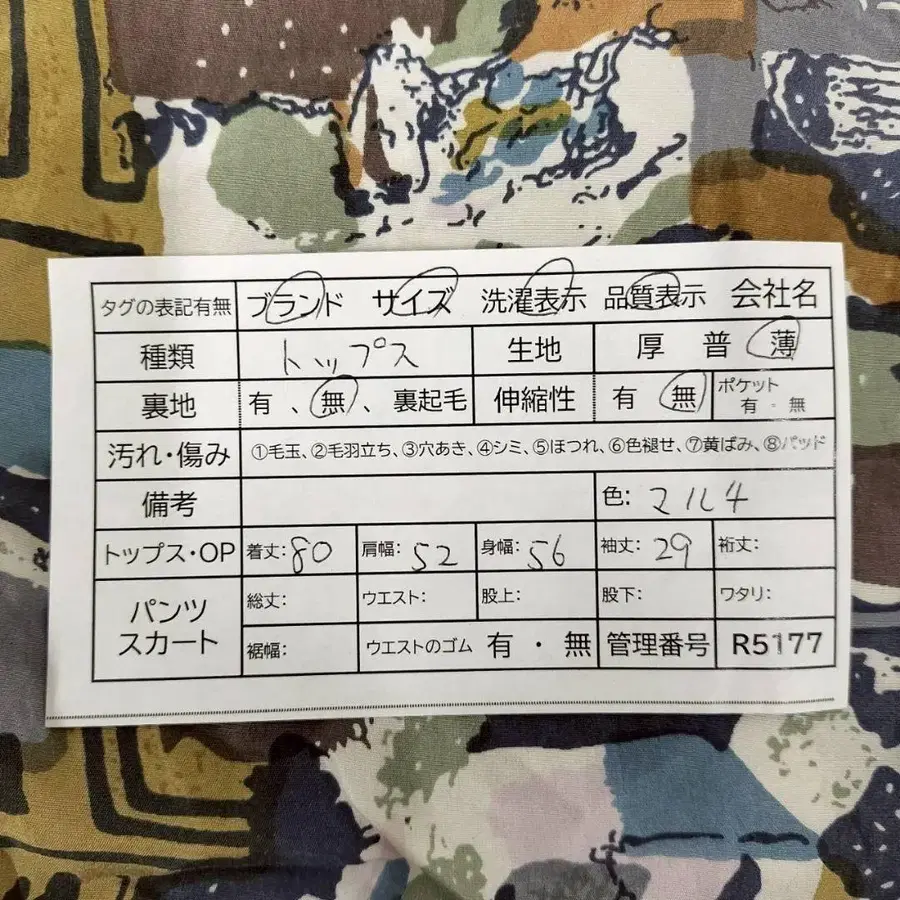 タグの表記有無 ブランド サイズ 洗濯表示 品質表示 会社名
種類 トップス 生地 厚 普 薄
裏地 有、無、裏起毛 伸縮性 有 無 ポケット 有・無
汚れ・傷み ①毛玉、②毛羽立ち、③穴あき、④シミ、⑤ほつれ、⑥色褪せ、⑦黄ばみ、⑧パッド
備考 色: マルチ
トップス・OP 着丈: 80 肩幅: 52 身幅: 56 袖丈: 29 裄丈:
パンツ スカート 総丈: ウエスト: 股上: 股下: ワタリ:
裾幅: ウエストのゴム 有・無 管理番号 R5177